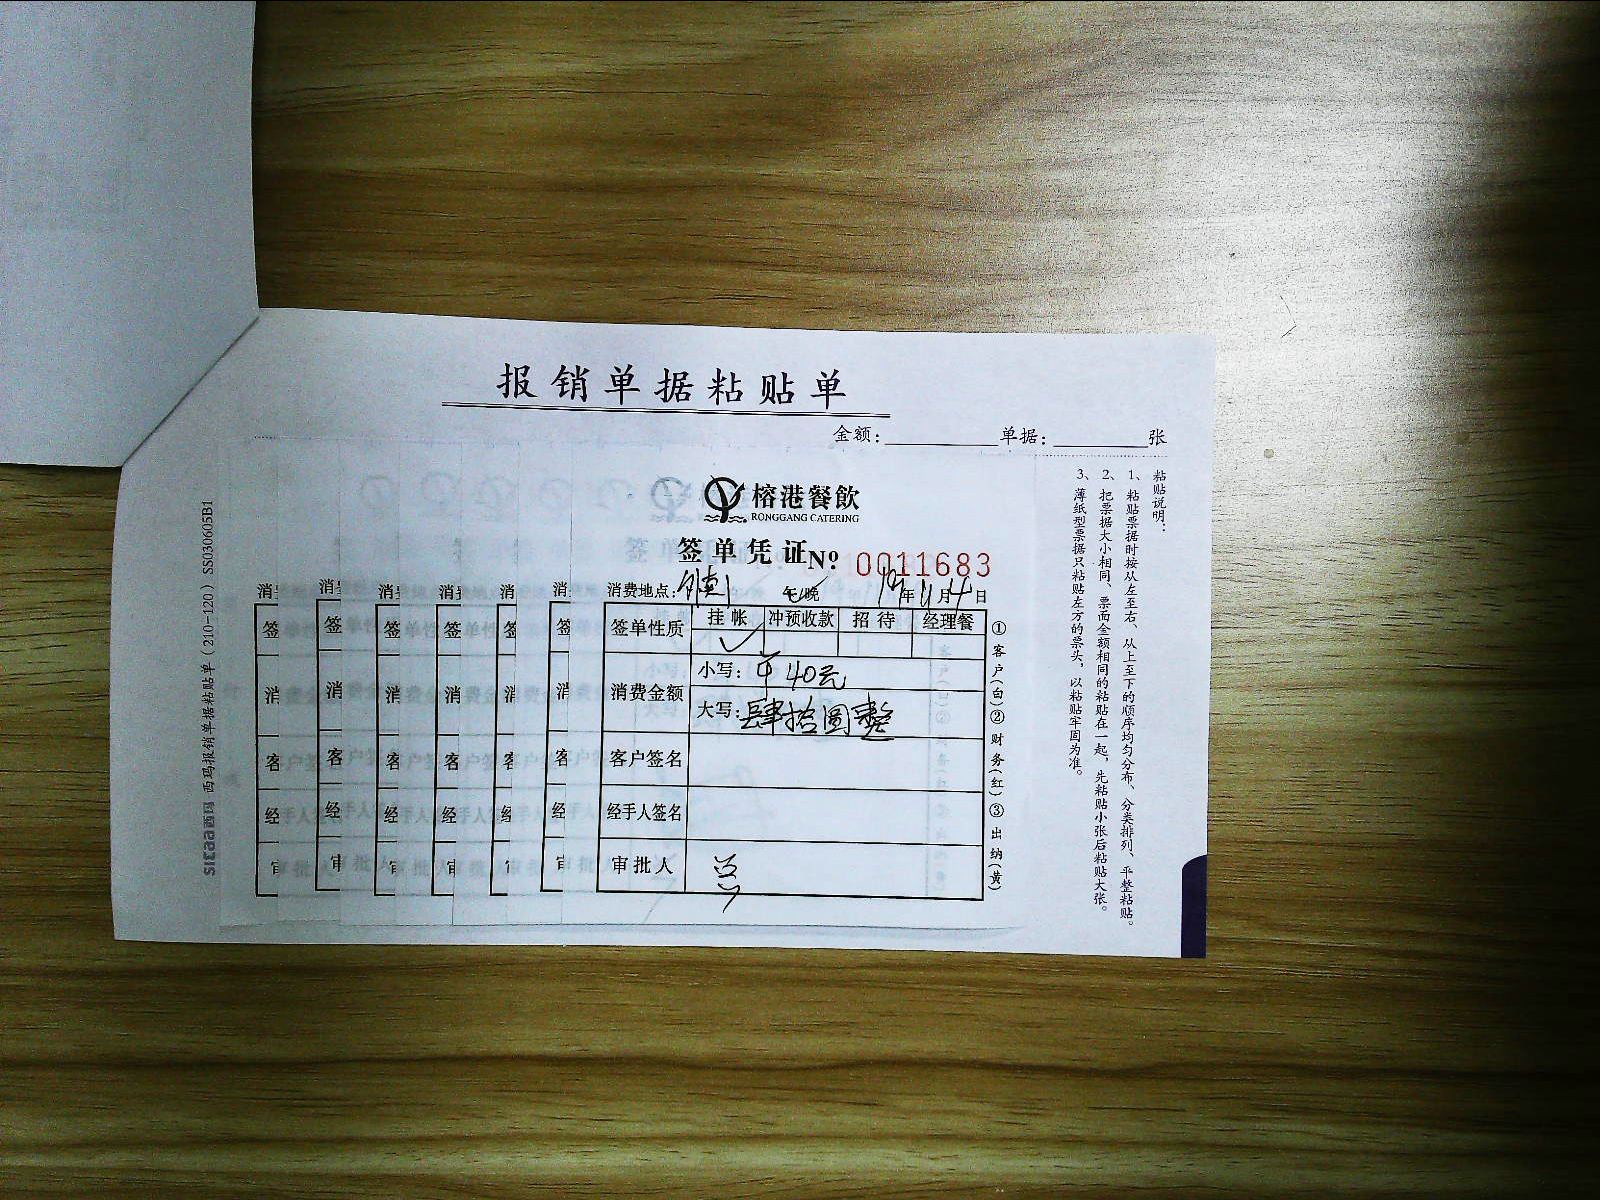 报销单据粘贴单
金额: 单据: 张
榕港餐飲
RONGGANG CATERING
签单凭证 No: 0011683
消费地点: 午/晚 19年11月4日
签单性质 挂帐 冲预收款 招待 经理餐
消费金额
小写: 40元
大写: 肆拾圆整
客户签名
经手人签名
审批人
①客户(白)②财务(红)③出纳(黄)
粘贴说明:
1、粘贴票据时按从左至右、从上至下的顺序均匀分布、分类排列、平整粘贴。
2、把票据大小相同、票面金额相同的粘贴在一起,先粘贴小张后粘贴大张。
3、薄纸型票据只粘贴左方的票头,以粘贴牢固为准。
西玛 西玛报销单据粘贴单(210-120) SS030605B1
消 消 消 消 消 消
签 签 签 签 签 签
消 消 消 消 消 消
客 客 客 客 客 客
经 经 经 经 经 经